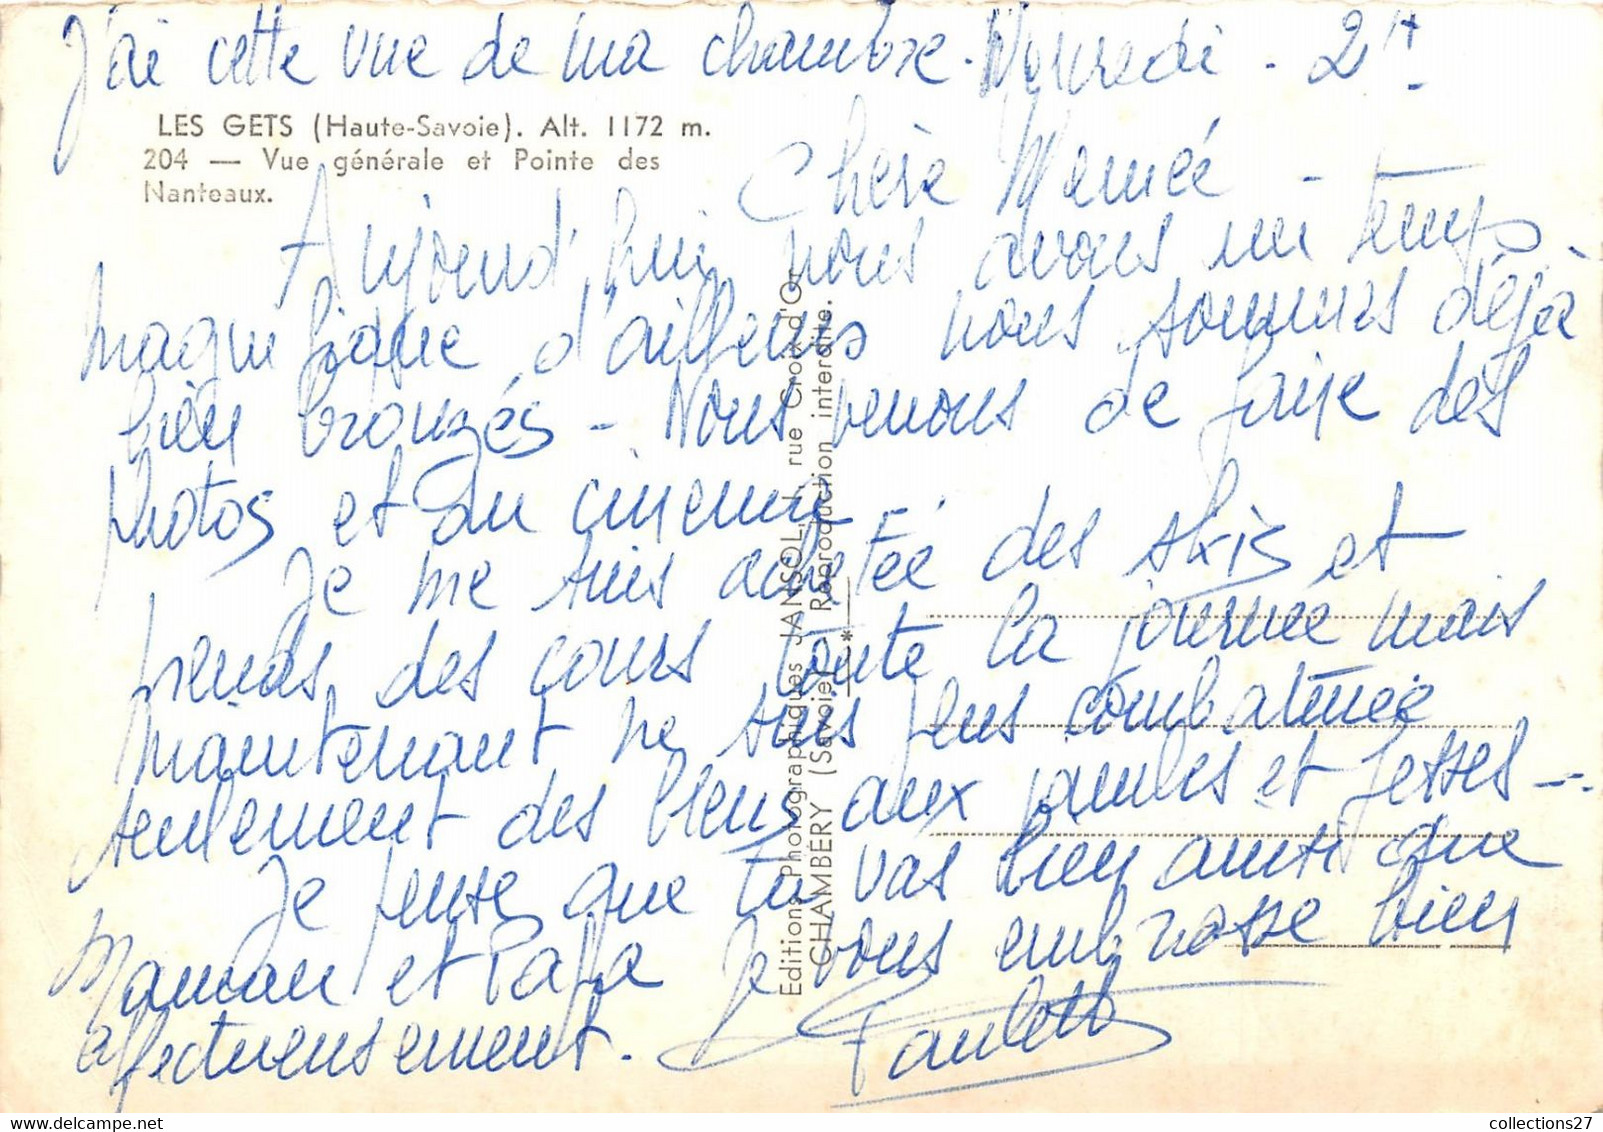 J'ai cette vue de ma chambre. Mercredi - 2H
LES GETS (Haute-Savoie). Alt. 1172 m.
204 — Vue générale et Pointe des
Nanteaux.
Chère Mémée -
Aujourd'hui nous avons un temps
magnifique d'ailleurs nous sommes déjà
bien bronzés - Nous venons de faire des
photos et du cinéma
Je me suis achetée des skis et
prends des cours toute la journée mais
maintenant ne suis plus combaturée
seulement des bleus aux jambes et fesses -
Je pense que tu vas bien ainsi que
Maman et Papa Je vous embrasse bien
affectueusement.
Paulette
Editions Photographiques JANSOL, 1, rue Croix d'Or
CHAMBÉRY (Savoie) Reproduction interdite.
collections27